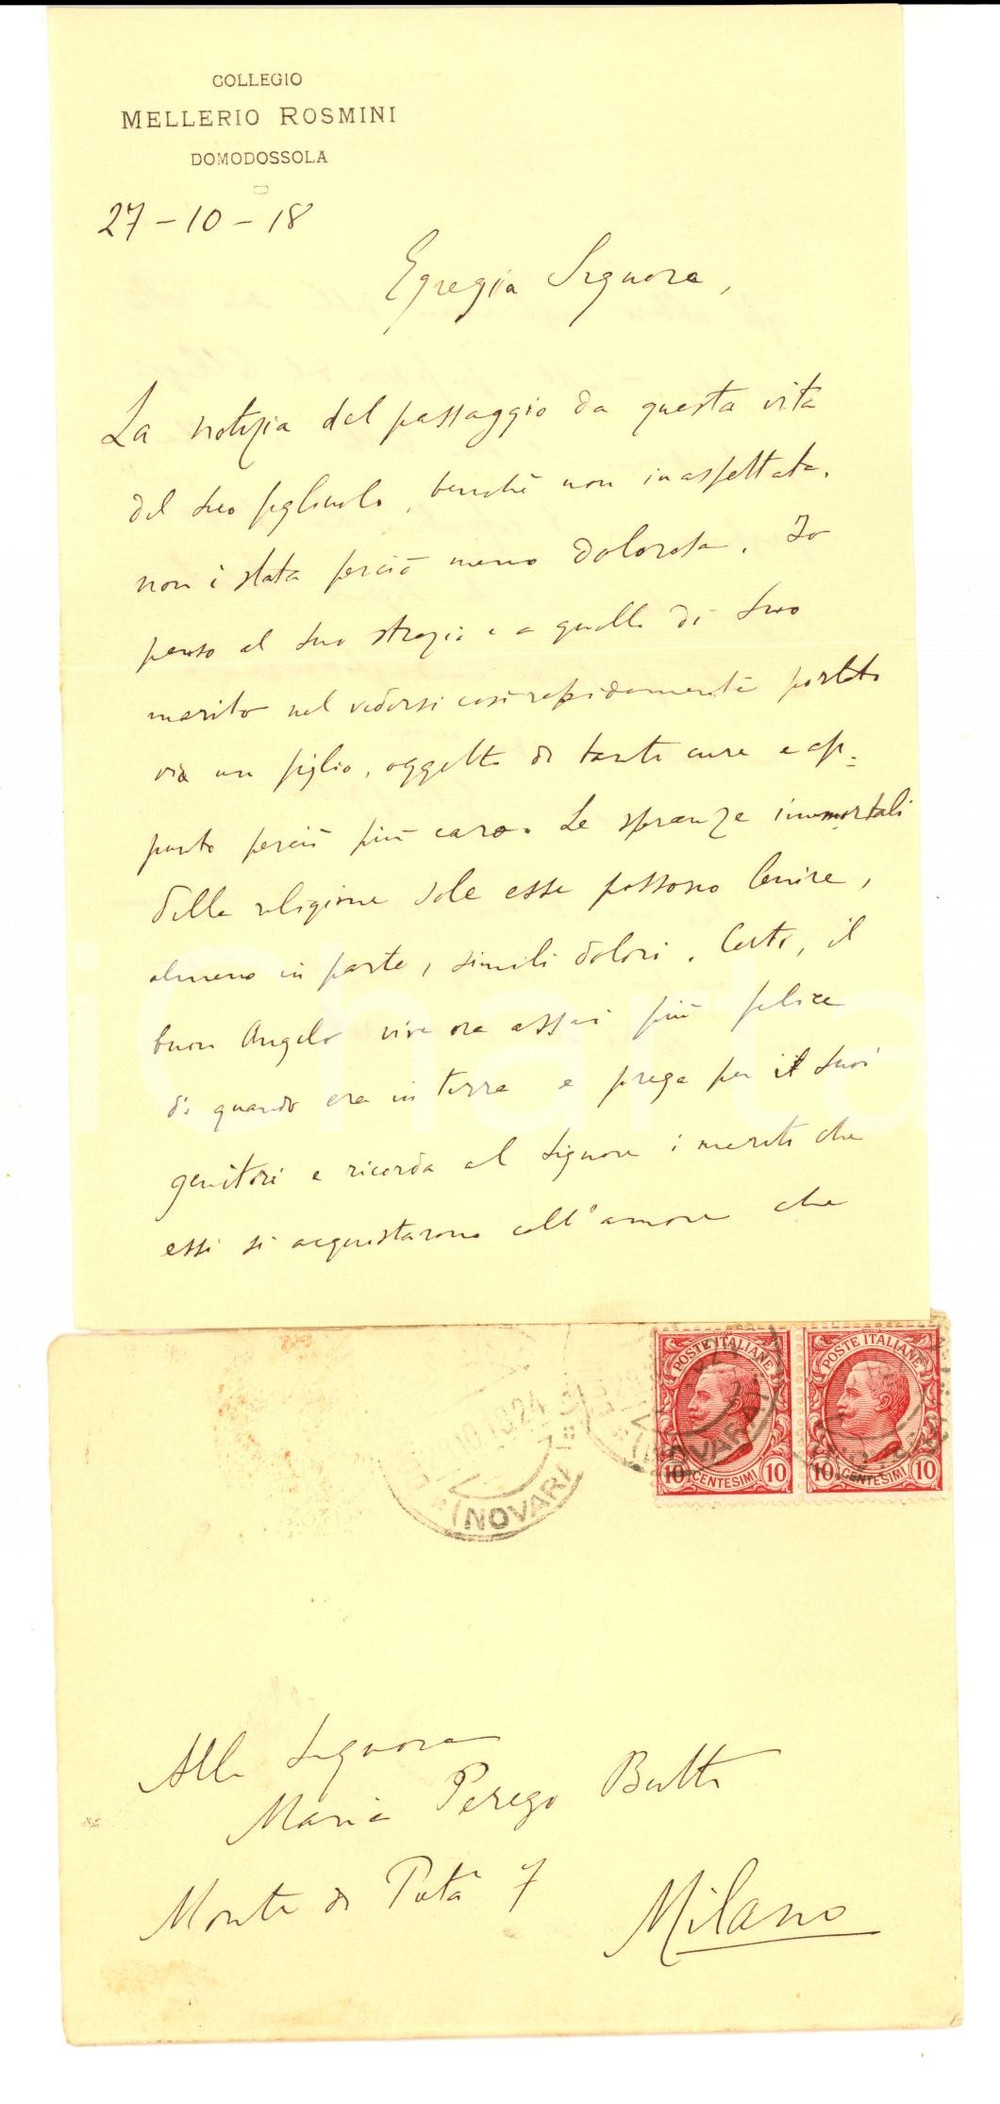 COLLEGIO
MELLERIO ROSMINI
DOMODOSSOLA
27-10-18
Egregia Signora,
La notizia del passaggio da questa vita
del suo figliuolo, benché non inaspettata,
non è stata perciò meno dolorosa. Io
penso al suo strazio e a quello di suo
marito nel vedersi così rapidamente portato
via un figlio, oggetto di tante cure e ap=
punto perciò più caro. Le speranze immortali
della religione sole esse possono lenire,
almeno in parte, simili dolori. Certo, il
buon Angelo vive ora assai più felice
di quando era in terra e prega per i suoi
genitori e ricorda al Signore i meriti che
essi si acquistarono coll'amore che
POSTE ITALIANE
POSTE ITALIANE
10 CENTESIMI 10
10 CENTESIMI 10
(NOVARA)
Alla Signora
Maria Perego Butti
Monte di Pietà 7
Milano
Charta